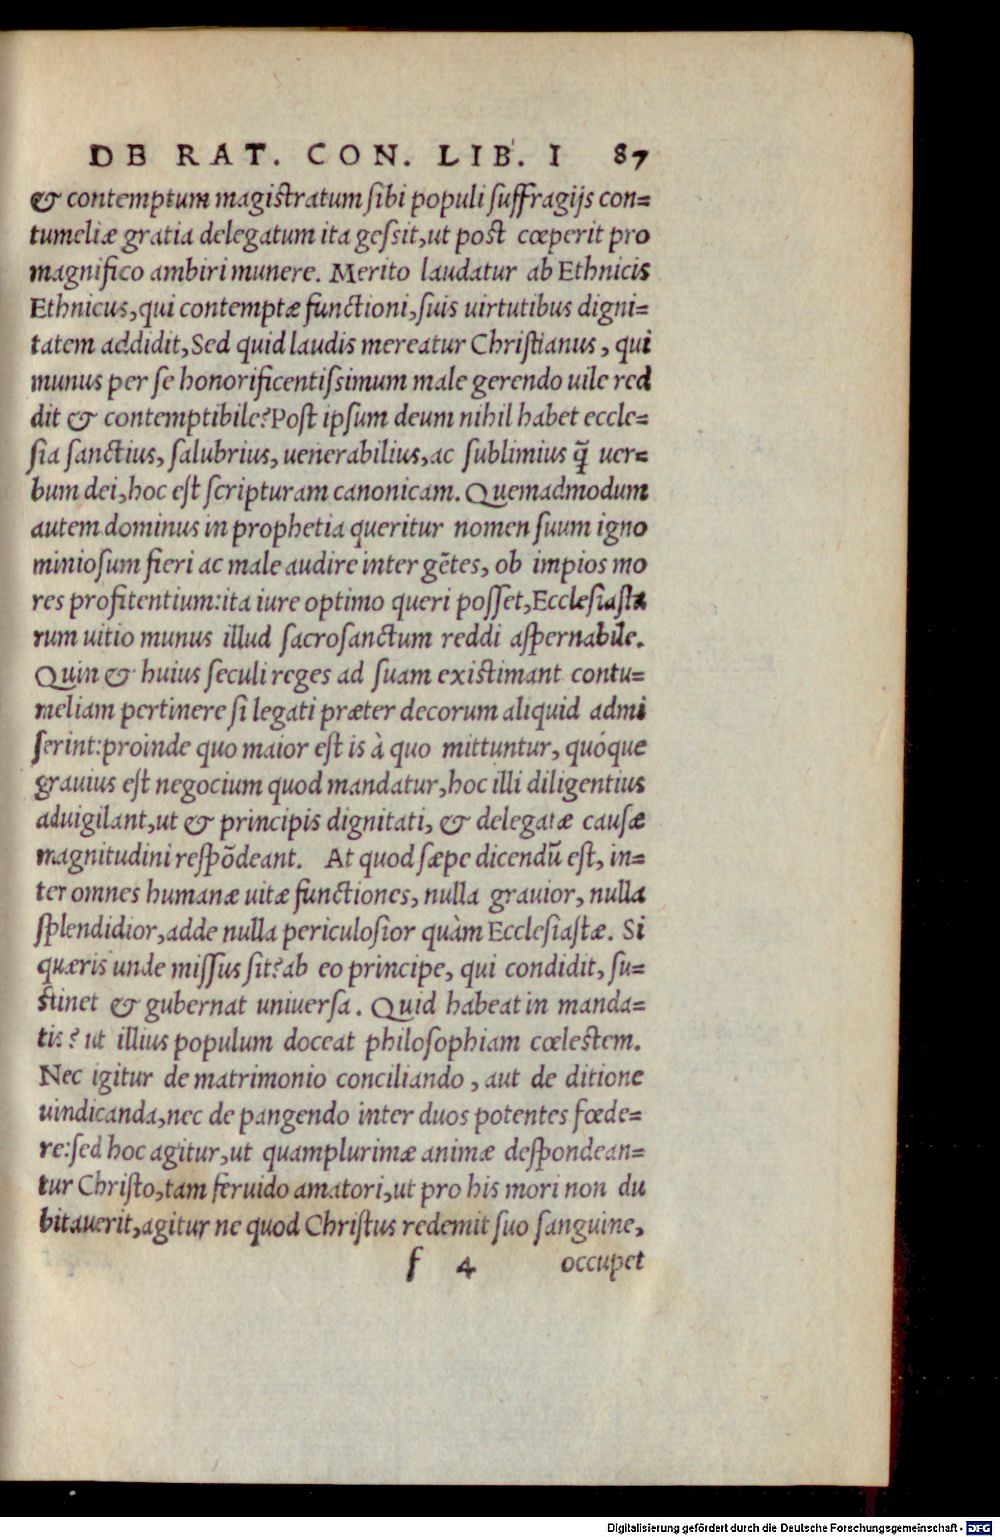 DE RAT. CON. LIB. I 87
& contemptum magistratum sibi populi suffragijs con=
tumeliæ gratia delegatum ita gessit,ut post cœperit pro
magnifico ambiri munere. Merito laudatur ab Ethnicis
Ethnicus,qui contemptæ functioni,suis uirtutibus digni=
tatem addidit,Sed quid laudis mereatur Christianus, qui
munus per se honorificentissimum male gerendo uile red
dit & contemptibile?Post ipsum deum nihil habet eccle=
sia sanctius, salubrius, uenerabilius, ac sublimius q̃ uer=
bum dei,hoc est scripturam canonicam. Quemadmodum
autem dominus in prophetia queritur nomen suum igno
miniosum fieri ac male audire inter gẽtes, ob impios mo
res profitentium:ita iure optimo queri posset,Ecclesiasta
rum uitio munus illud sacrosanctum reddi aspernabile.
Quin & huius seculi reges ad suam existimant contu=
meliam pertinere si legati præter decorum aliquid admi
serint:proinde quo maior est is à quo mittuntur, quóque
grauius est negocium quod mandatur,hoc illi diligentius
aduigilant,ut & principis dignitati, & delegatæ causæ
magnitudini respõdeant. At quod sæpe dicendũ est, in=
ter omnes humanæ uitæ functiones, nulla grauior, nulla
splendidior,adde nulla periculosior quàm Ecclesiastæ. Si
quæris unde missus sit?ab eo principe, qui condidit, su=
stinet & gubernat uniuersa. Quid habeat in manda=
tis? ut illius populum doceat philosophiam cœlestem.
Nec igitur de matrimonio conciliando, aut de ditione
uindicanda,nec de pangendo inter duos potentes fœde=
re:sed hoc agitur,ut quamplurimæ animæ despondean=
tur Christo,tam feruido amatori,ut pro his mori non du
bitauerit,agitur ne quod Christus redemit suo sanguine,
f 4 occupet
Digitalisierung gefördert durch die Deutsche Forschungsgemeinschaft - DFG